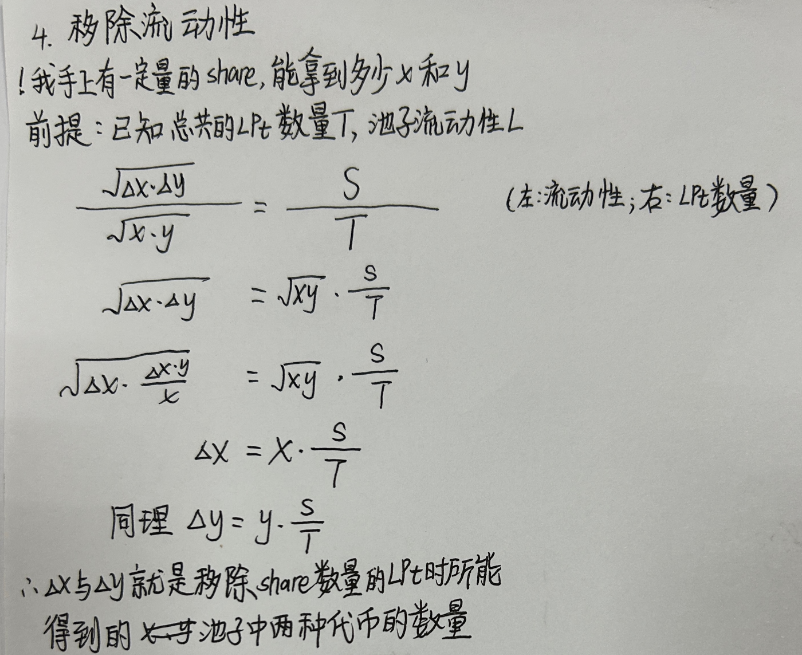 4. 移除流动性
! 我手上有一定量的share, 能拿到多少x和y
前提：已知总共的LPt数量T, 池子流动性L
√(Δx·Δy) / √(x·y) = S / T （左：流动性；右：LPt数量）
√(Δx·Δy) = √(xy) · S/T
√(Δx · (Δx·y)/x) = √(xy) · S/T
Δx = x · S/T
同理 Δy = y · S/T
∴ Δx与Δy就是移除share数量的LPt时所能
得到的 池子中两种代币的数量